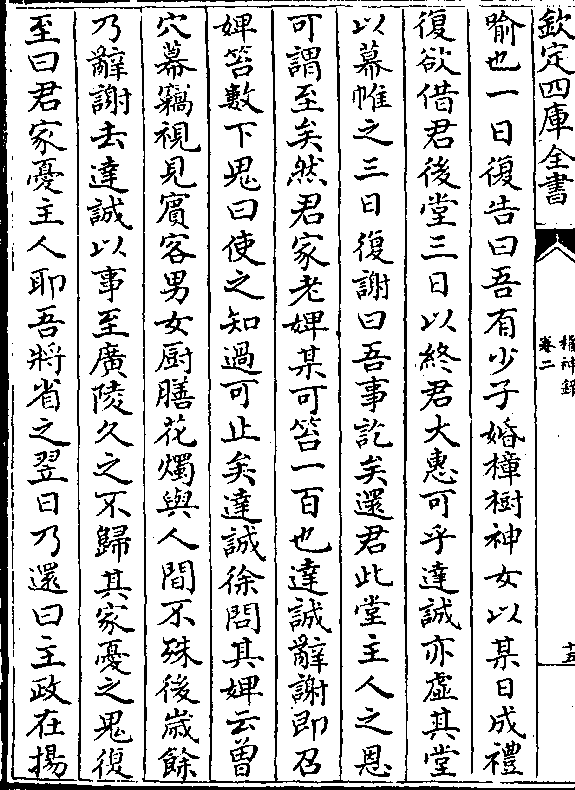 欽定四庫全書
稽神錄
卷二
十五
喻也一日復告曰吾有少子婚樟樹神女以某日成禮
復欲借君後堂三日以終君大惠可乎達誠亦虛其堂
以幕帷之三日復謝曰吾事訖矣還君此堂主人之恩
可謂至矣然君家老婢某可笞一百也達誠辭謝即召
婢笞數下鬼曰使之知過可止矣達誠徐問其婢云曽
穴幕竊視見賓客男女厨膳花燭與人間不殊後嵗餘
乃辭謝去達誠以事至廣陵久之不歸其家憂之鬼復
至曰君家憂主人耶吾將省之翌日乃還曰主政在揚